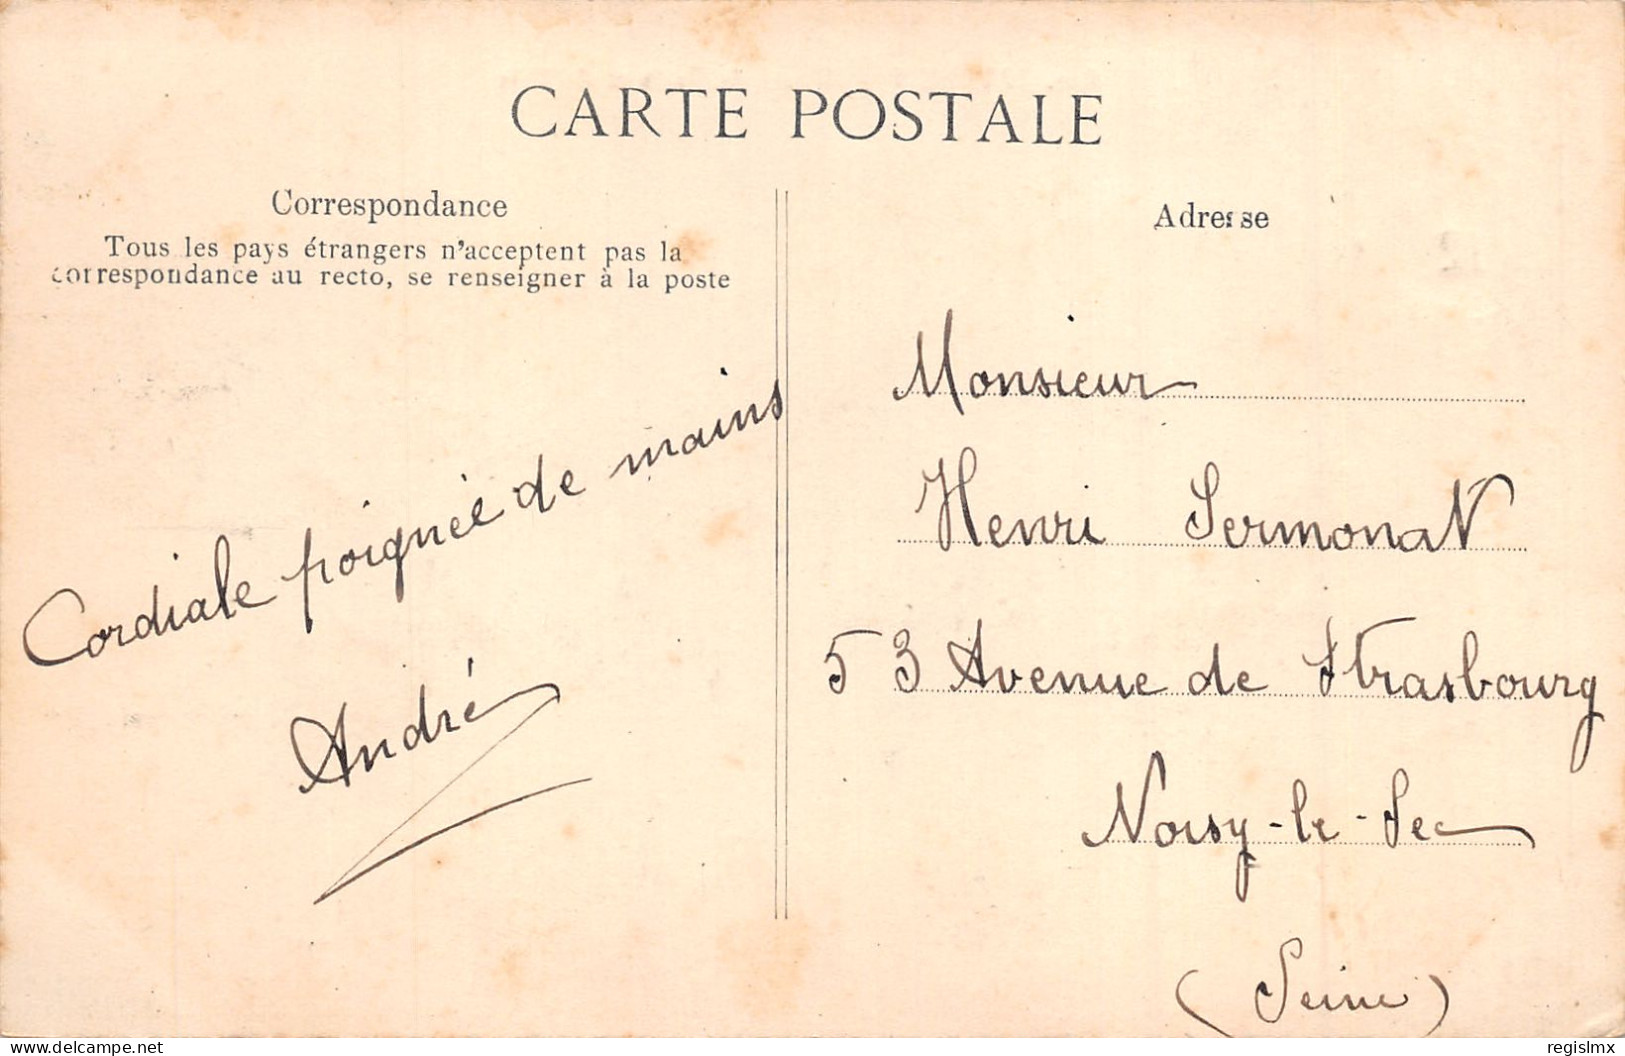 CARTE POSTALE
Correspondance
Tous les pays étrangers n'acceptent pas la
correspondance au recto, se renseigner à la poste
Cordiale poignée de mains
André
Adresse
Monsieur
Henri Sermonat
53 Avenue de Strasbourg
Noisy-le-Sec
(Seine)
delcampe.net
regislmx